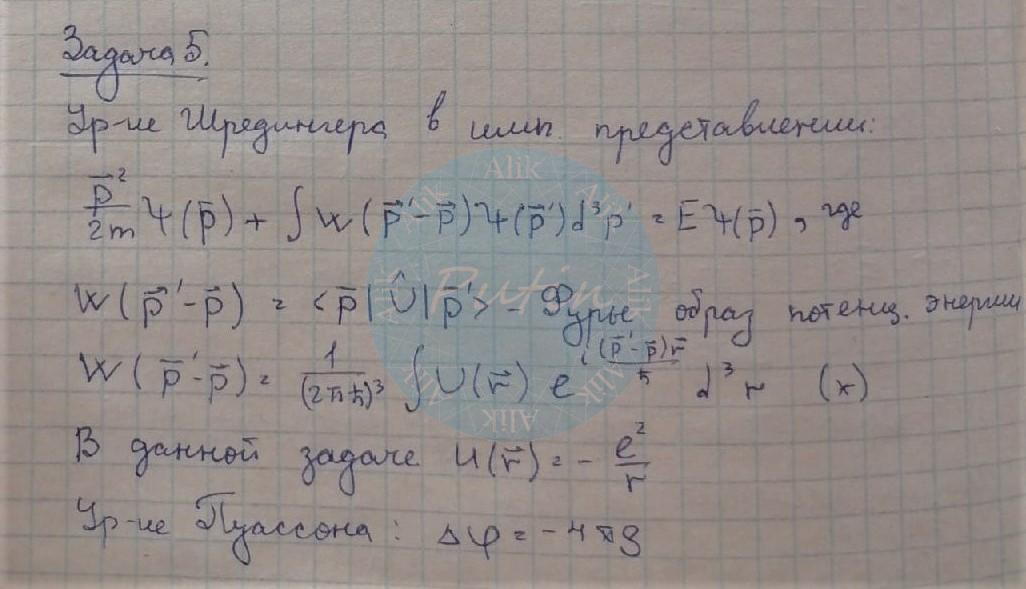 Задача 5.
Ур-ие Шредингера в имп. представлении:
p̄²/2m Ψ(p̄) + ∫ W(p̄'-p̄)Ψ(p̄')d³p' = EΨ(p̄), где
W(p̄'-p̄) = <p̄|Û|p̄'> - Фурье образ потенц. энергии
W(p̄'-p̄) = 1/(2πħ)³ ∫ U(r̄) e^(i(p̄'-p̄)r̄/ħ) d³r (x)
В данной задаче U(r̄) = - e²/r
Ур-ие Пуассона: Δφ = -4πρ
Alik Alik Alik Alik Alik Alik Alik Alik
Putin